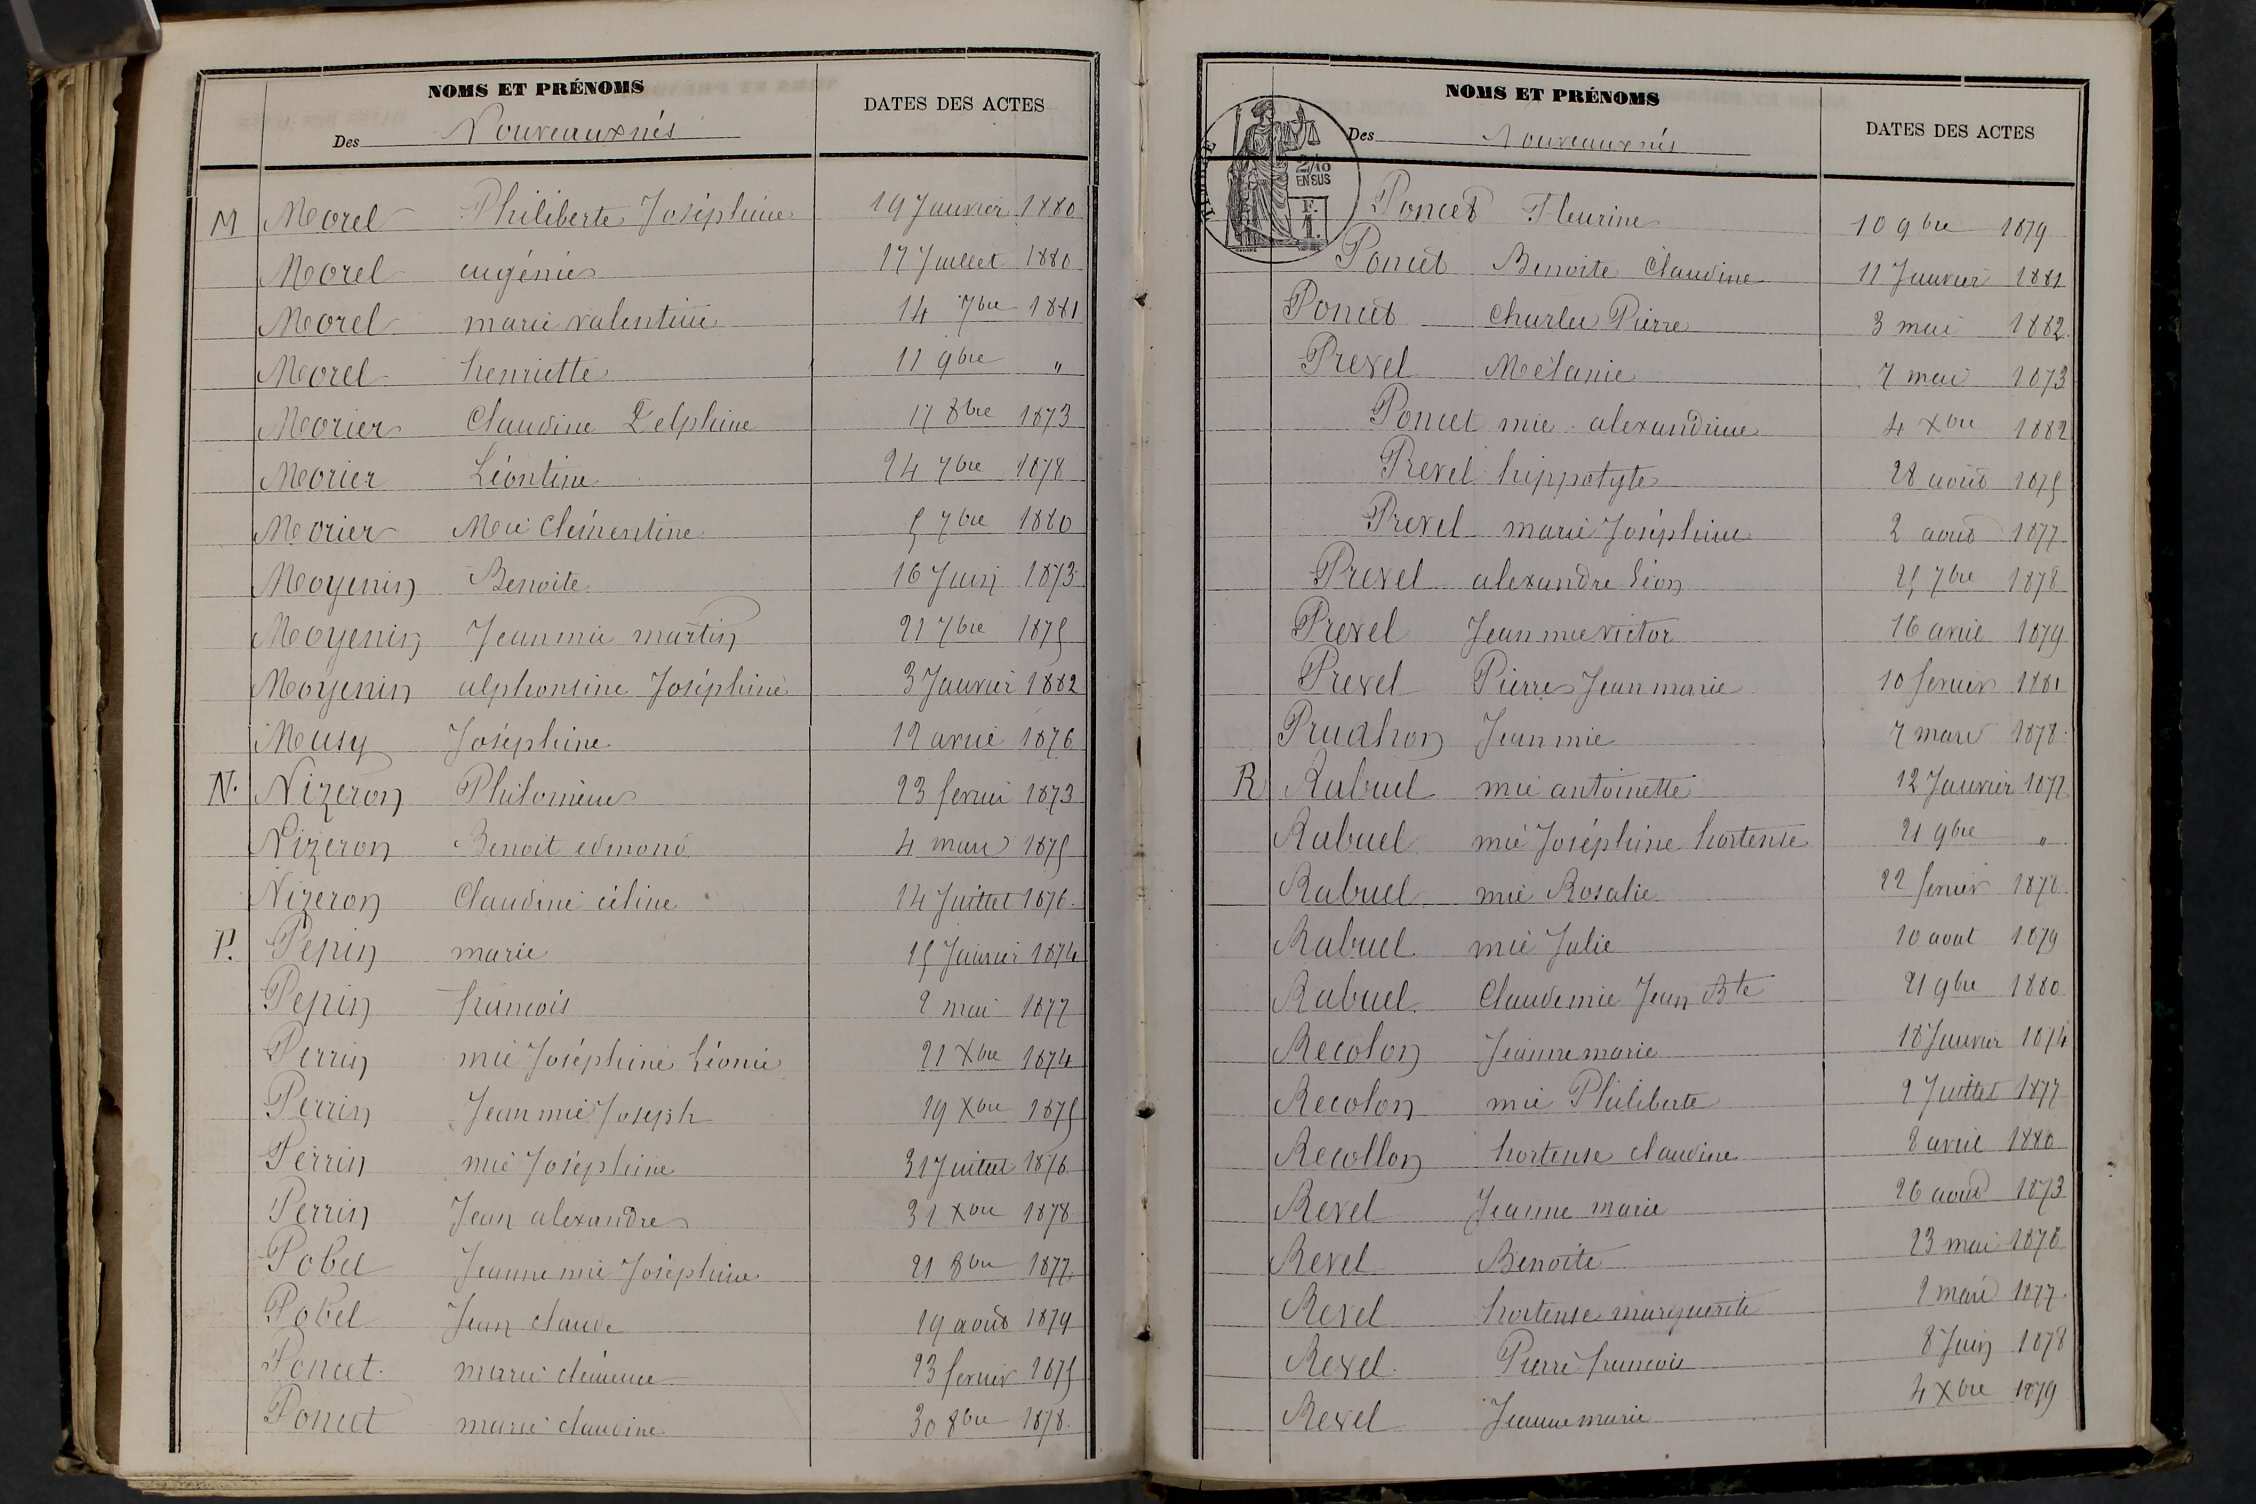 NOMS ET PRÉNOMS
DATES DES ACTES
Des Nouveauxnés
M Morel Philiberte Joséphine 19 Janvier 1880
Morel eugénie 17 Juillet 1880
Morel marie valentine 14 7bre 1881
Morel henriette 11 9bre "
Morier Claudine Delphine 17 8bre 1873
Morier Léontine 24 7bre 1878
Morier Mie Clémentine 5 7bre 1880
Moyenin Benoite 16 Juin 1873
Moyenin Jean mie martin 21 7bre 1875
Moyenin alphonsine Joséphine 3 Janvier 1882
Musy Joséphine 12 avril 1876
N. Nizeron Philomène 23 fevrier 1873
Nizeron Benoit edmond 4 mars 1875
Nizeron Claudine céline 14 Juillet 1876
P. Pepin marie 15 Janvier 1874
Pepin francois 2 mai 1877
Perrin mie Joséphine Léonie 21 Xbre 1874
Perrin Jean mie Joseph 19 Xbre 1875
Perrin mie Joséphine 31 Juillet 1876
Perrin Jean alexandre 31 Xbre 1878
Pobel Jeanne mie Joséphine 21 8bre 1877
Pobel Jean claude 19 août 1879
Poncet marie clémence 23 fevrier 1875
Poncet marie claudine 30 8bre 1878
NOMS ET PRÉNOMS
DATES DES ACTES
Des Nouveauxnés
2/10
EN SUS
F.
1.
Poncet Fleurine 10 9bre 1879
Poncet Benoite Claudine 11 Janvier 1881
Poncet Charles Pierre 3 mai 1882
Prevel Mélanie 7 mai 1873
Poncet mie alexandrine 4 Xbre 1882
Prevel hippolyte 28 août 1875
Prevel marie Joséphine 2 août 1877
Prevel alexandre Léon 25 7bre 1878
Prevel Jean mie victor 16 avril 1879
Prevel Pierre Jean marie 10 fevrier 1881
Prudhon Jean mie 7 mars 1878
R Rabuel mie antoinette 12 Janvier 1877
Rabuel mie Joséphine hortense 21 9bre "
Rabuel mie Rosalie 22 fevrier 1878
Rabuel mie Julie 10 aout 1879
Rabuel Claude mie Jean Bte 21 9bre 1880
Recolon Jeanne marie 18 Janvier 1874
Recolon mie Philiberte 2 Juillet 1877
Recollon hortense claudine 8 avril 1880
Revel Jeanne marie 26 août 1873
Revel Benoite 23 mai 1876
Revel hortense marguerite 2 mars 1877
Revel Pierre francois 8 Juin 1878
Revel Jeanne marie 4 Xbre 1879